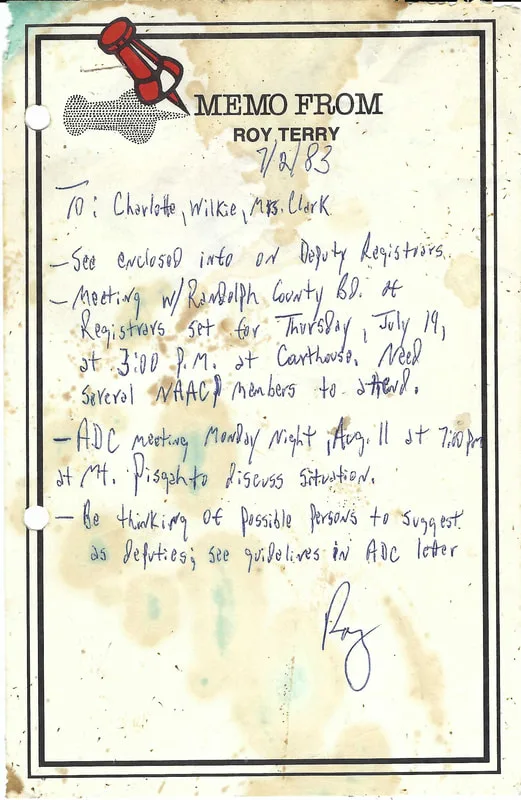 MEMO FROM
ROY TERRY
7/2/83
To: Charlotte, Wilkie, Mrs. Clark
- See enclosed info on Deputy Registrars.
- Meeting w/ Randolph County BD. of
Registrars set for Thursday, July 19,
at 3:00 P.M. at Courthouse. Need
several NAACP members to attend.
- ADC meeting Monday Night, Aug. 11 at 7:00 pm
at Mt. Pisgah to discuss situation.
- Be thinking of possible persons to suggest
as deputies; see guidelines in ADC letter
Roy